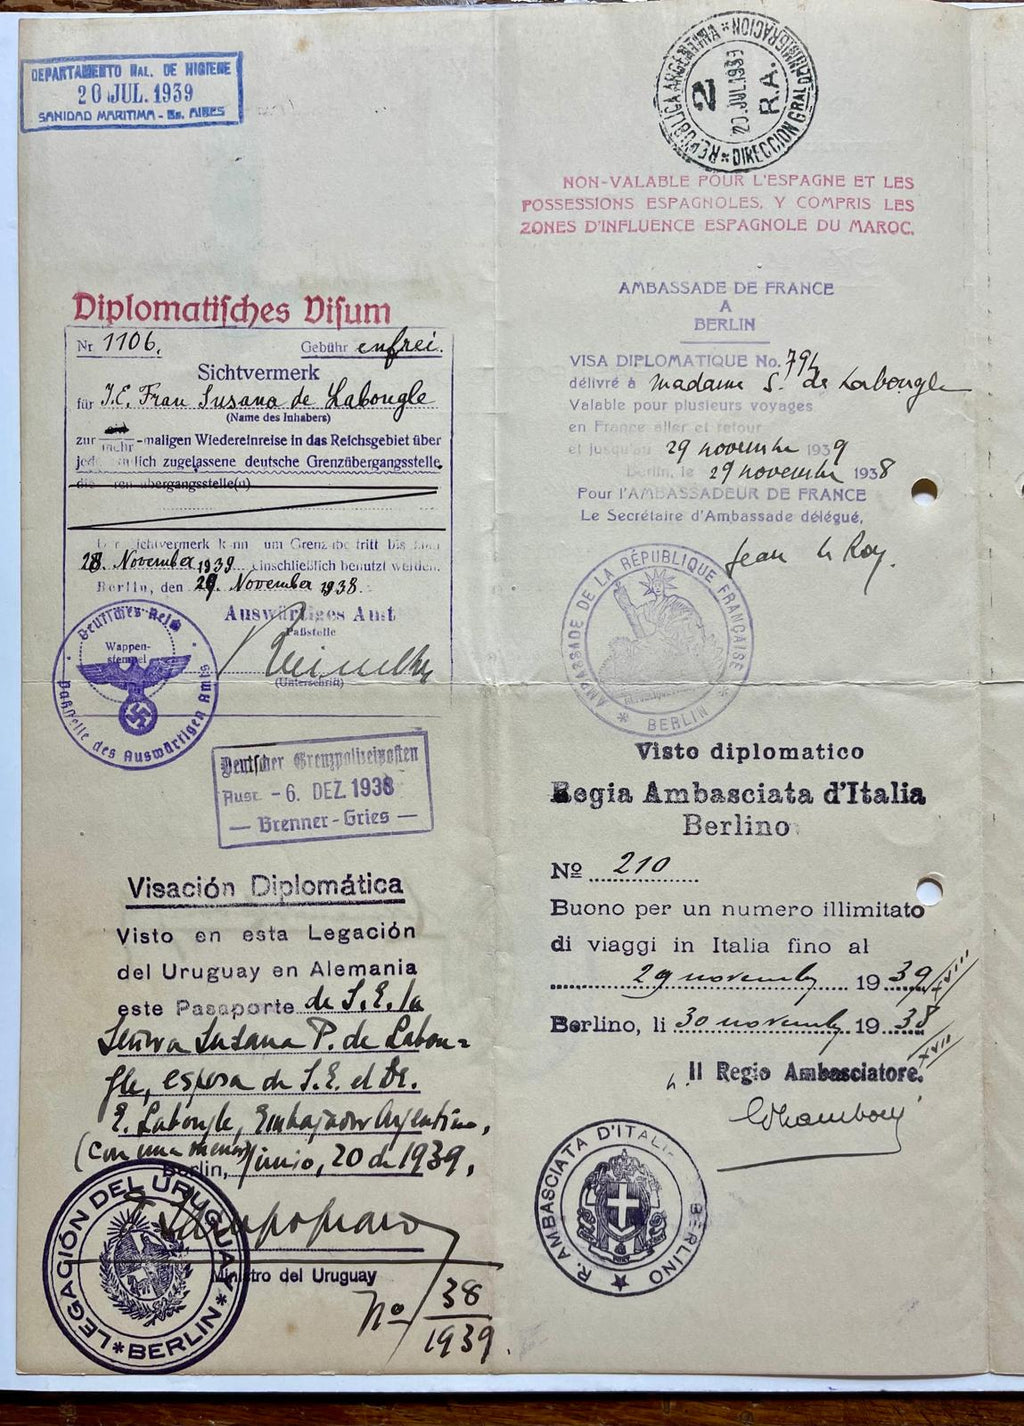 DEPARTAMENTO NAL. DE HIGIENE
20 JUL. 1939
SANIDAD MARITIMA - Bs. AIRES
Diplomatisches Visum
Nr 1106. Gebühr enfrei.
Sichtvermerk
für I.E. Frau Susana de Labougle
(Name des Inhabers)
zur mehr-maligen Wiedereinreise in das Reichsgebiet über
jede zugelassene deutsche Grenzübergangsstelle.
28. November 1939 einschließlich benutzt werden.
Berlin, den 29. November 1938.
Auswärtiges Amt
Paßstelle
(Unterschrift)
Deutsches Reich
Wappen-
stempel
Paßstelle des Auswärtigen Amts
Deutscher Grenzpolizeiposten
Ausr. - 6. DEZ. 1938
— Brenner-Gries —
Visación Diplomática
Visto en esta Legación
del Uruguay en Alemania
este Pasaporte de S.E. la
Señora Susana P. de Labou-
gle, esposa de S.E. el Dr.
E. Labougle, Embajador Argentino,
(con una menor)
Berlin, junio, 20 de 1939.
Ministro del Uruguay
LEGACIÓN DEL URUGUAY
* BERLIN *
Nº 38
1939.
REPUBLICA ARGENTINA * INMIGRACION
2
20 JUL 1939
R.A.
* DIRECCION GRAL
NON-VALABLE POUR L'ESPAGNE ET LES
POSSESSIONS ESPAGNOLES, Y COMPRIS LES
ZONES D'INFLUENCE ESPAGNOLE DU MAROC.
AMBASSADE DE FRANCE
A
BERLIN
VISA DIPLOMATIQUE No. 794
délivré à Madame S. de Labougle
Valable pour plusieurs voyages
en France aller et retour
et jusqu'au 29 novembre 1939
Berlin, le 29 novembre 1938
Pour l'AMBASSADEUR DE FRANCE
Le Secrétaire d'Ambassade délégué,
Jean le Roy.
AMBASSADE DE LA RÉPUBLIQUE FRANÇAISE
* BERLIN *
Visto diplomatico
Regia Ambasciata d'Italia
Berlino
Nº 210
Buono per un numero illimitato
di viaggi in Italia fino al
29 novemb 1939/XVIII
Berlino, li 30 novemb 1938
XVII
Il Regio Ambasciatore.
R. AMBASCIATA D'ITALIA BERLINO